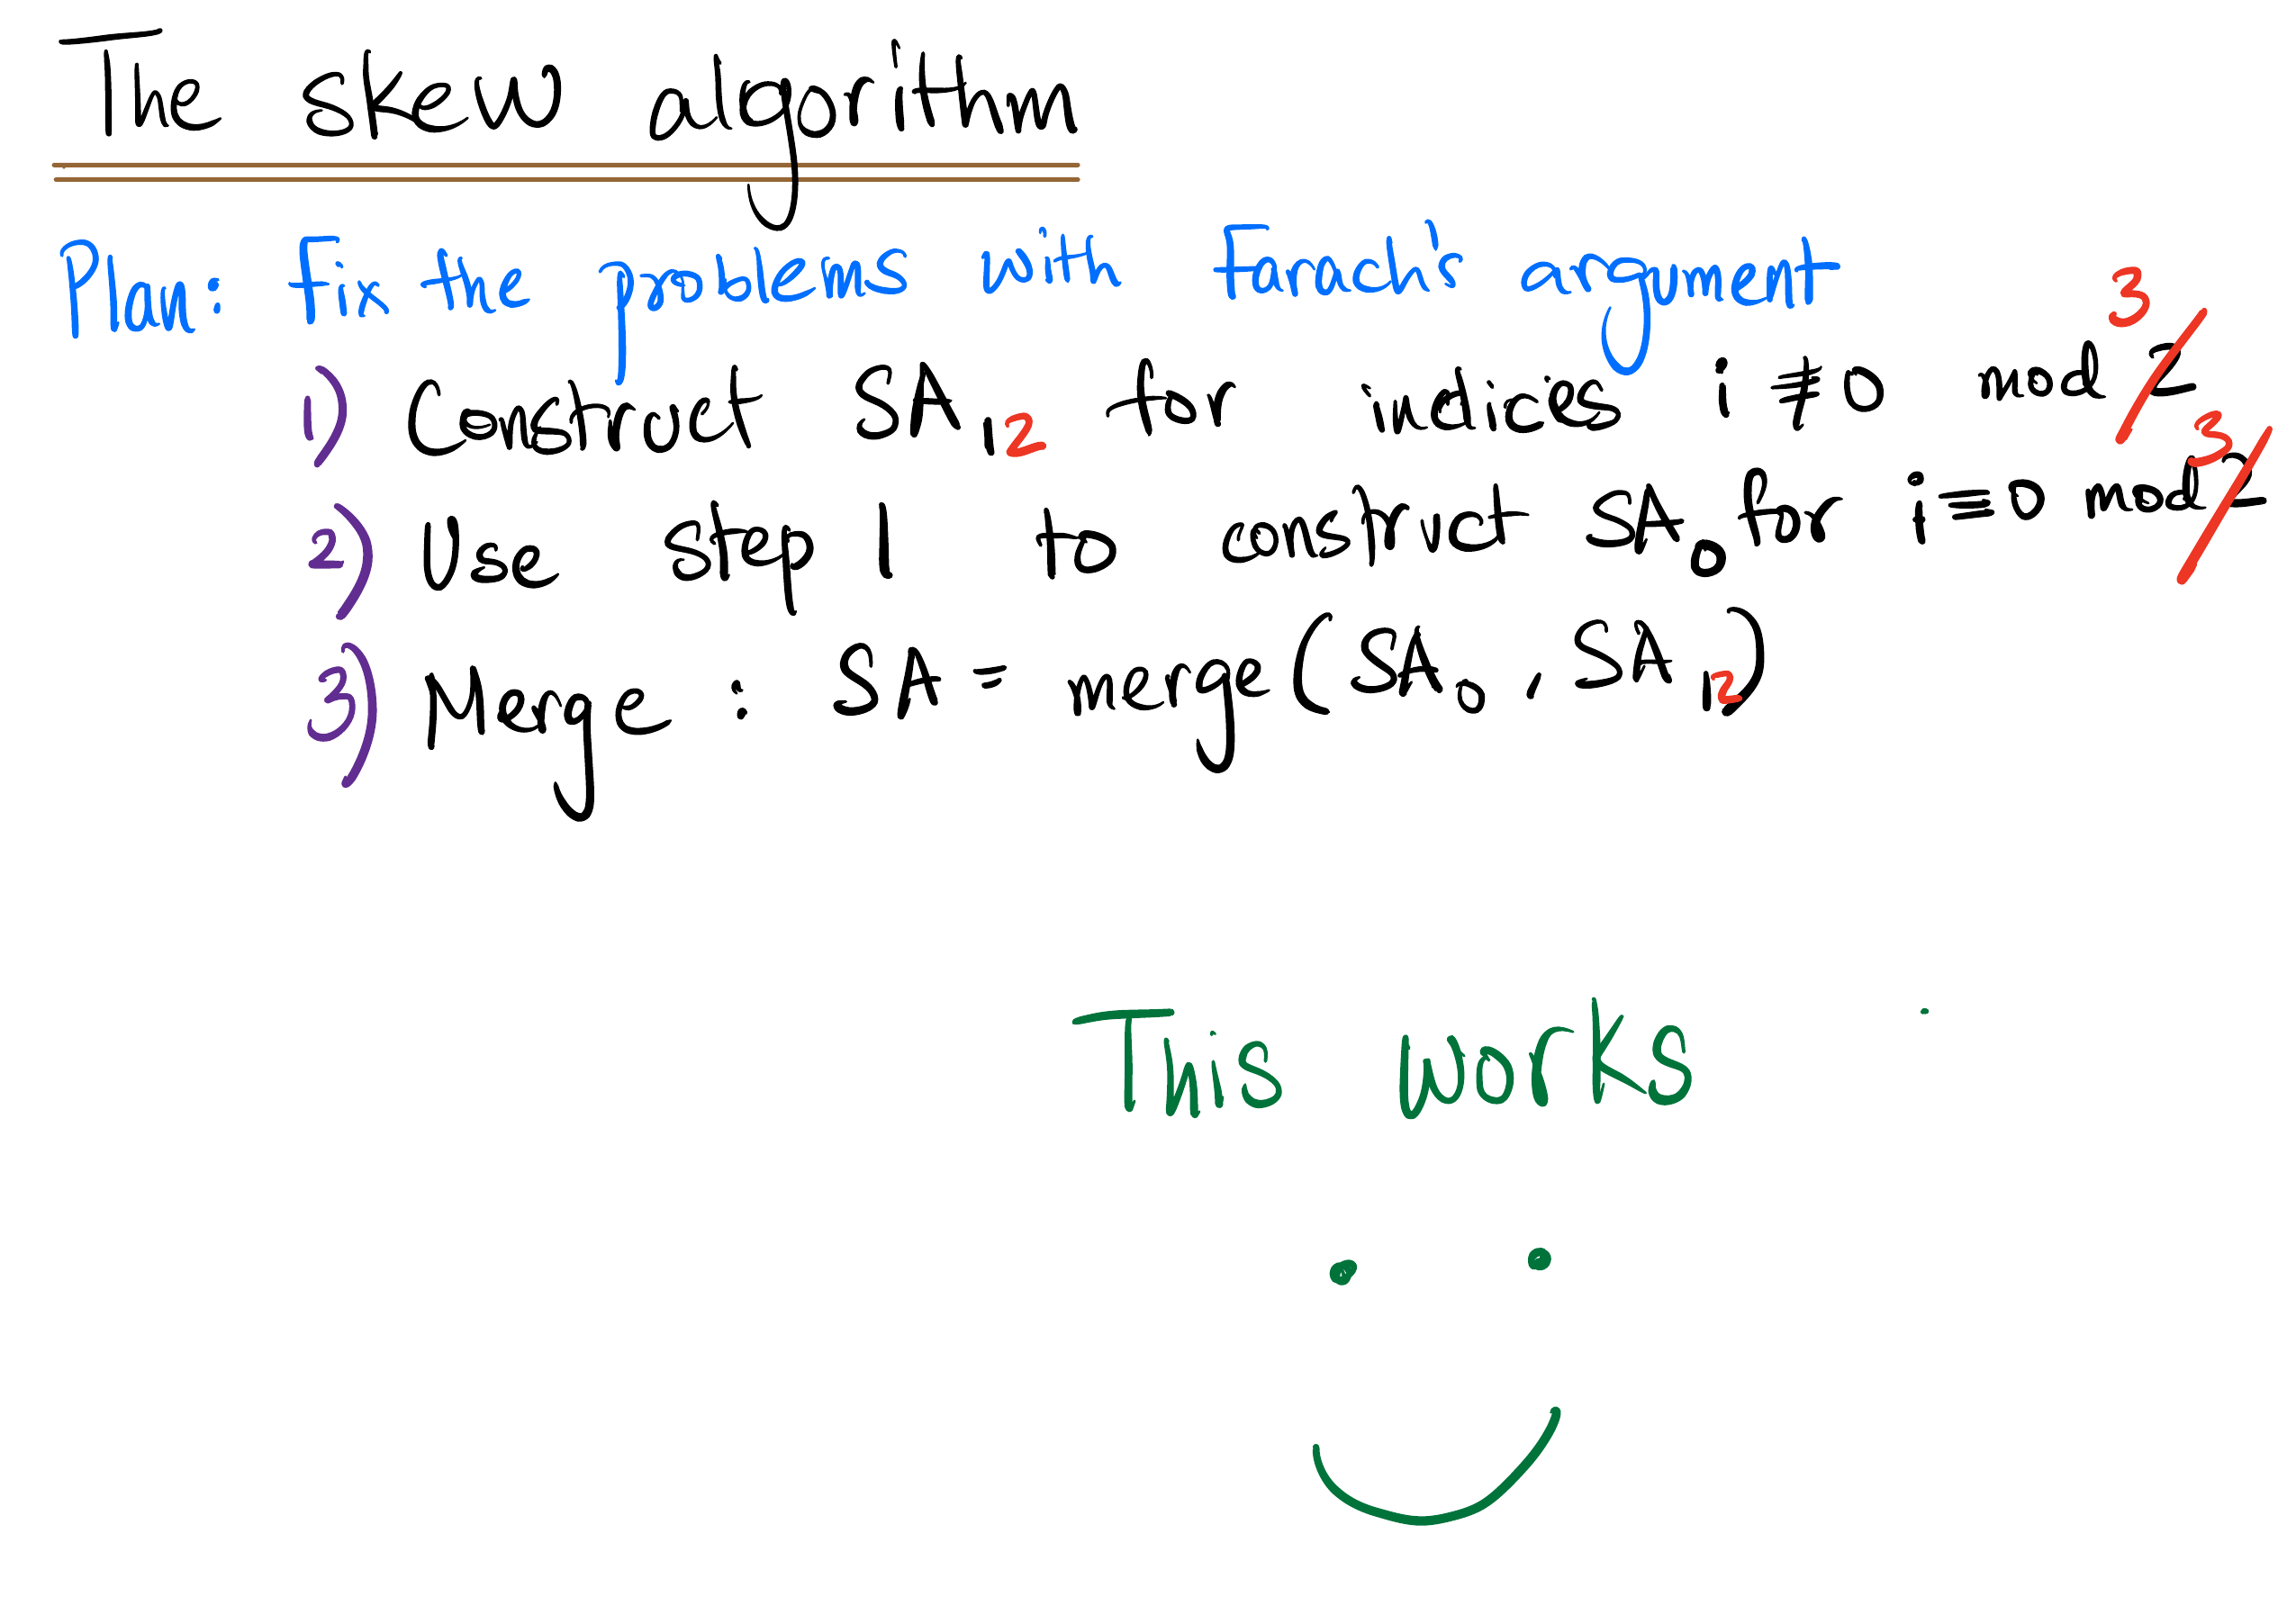 The skew algorithm
Plan: Fix the problems with Farach's argument
1) Construct SA₁₂ for indices i ≢ 0 mod 2 3
2) Use step 1 to construct SA₀ for i ≡ 0 mod 2 3
3) Merge : SA = merge(SA₀, SA₁₂)
This works